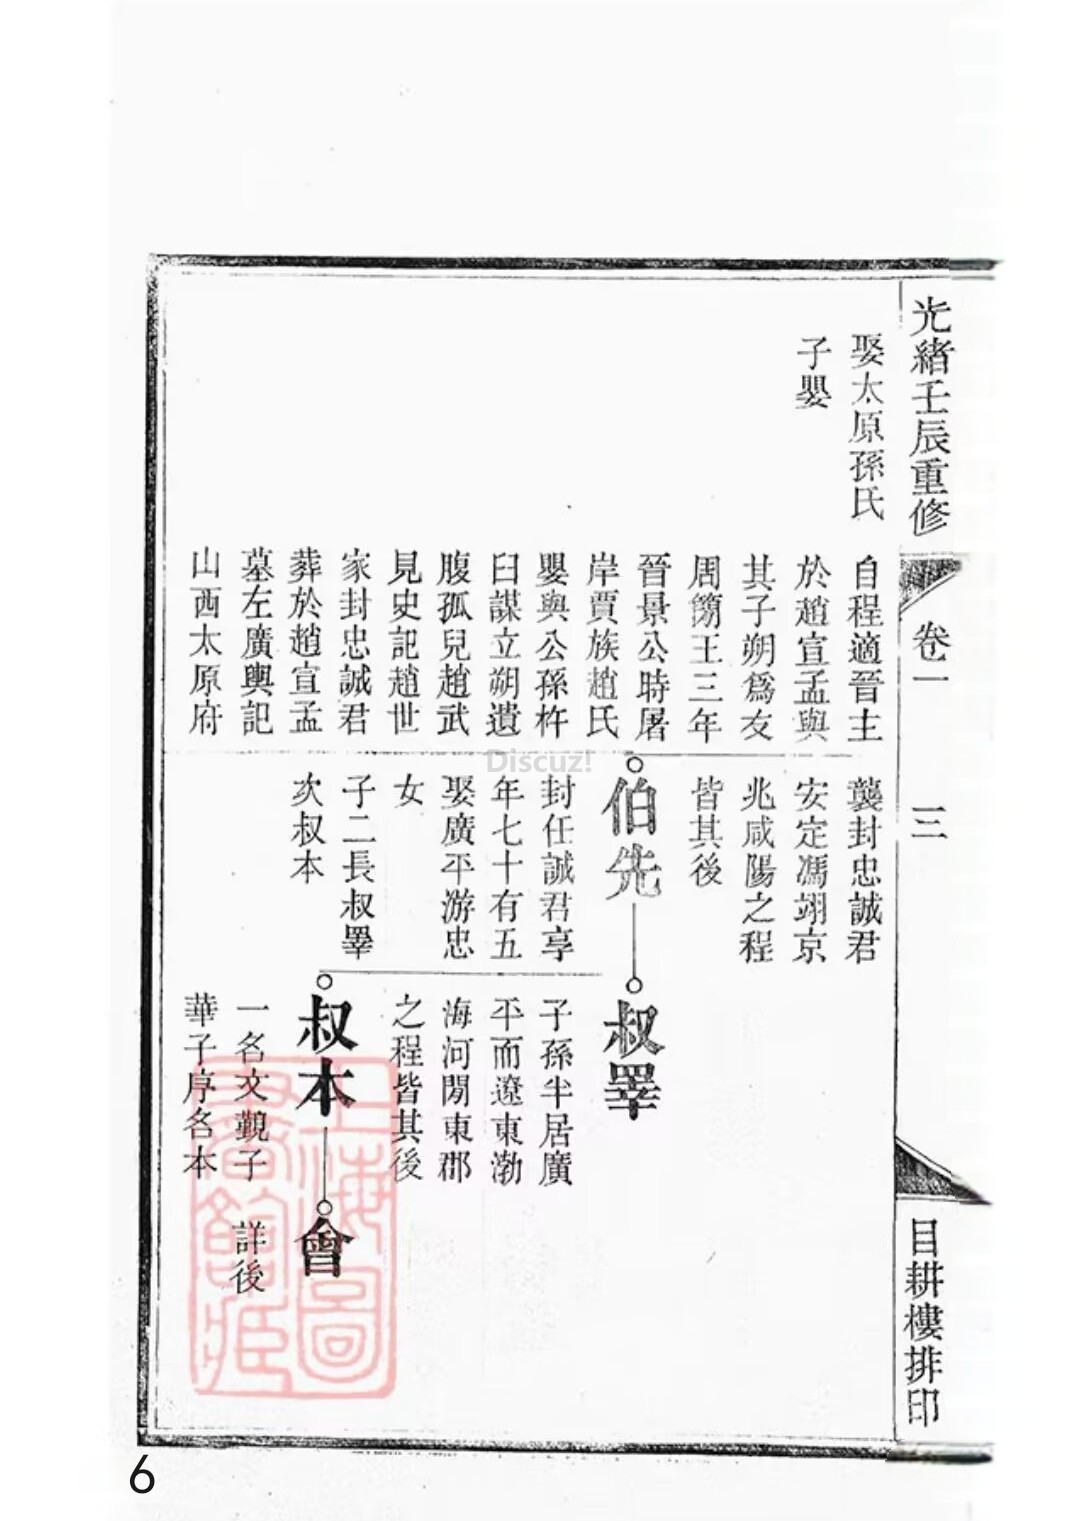 光緒壬辰重修
卷一
三
目耕樓排印
娶太原孫氏
子嬰
自程適晉主
於趙宣孟與
其子朔爲友
周簡王三年
晉景公時屠
岸賈族趙氏
嬰與公孫杵
臼謀立朔遺
腹孤兒趙武
見史記趙世
家封忠誠君
葬於趙宣孟
墓左廣輿記
山西太原府
襲封忠誠君
安定馮翊京
兆咸陽之程
皆其後
伯先
封任誠君享
年七十有五
娶廣平游忠
女
子二長叔睪
次叔本
叔睪
子孫半居廣
平而遼東渤
海河閒東郡
之程皆其後
叔本
一名文觀子
華子序名本
會
詳後
上海圖
書館藏
Discuz!
6